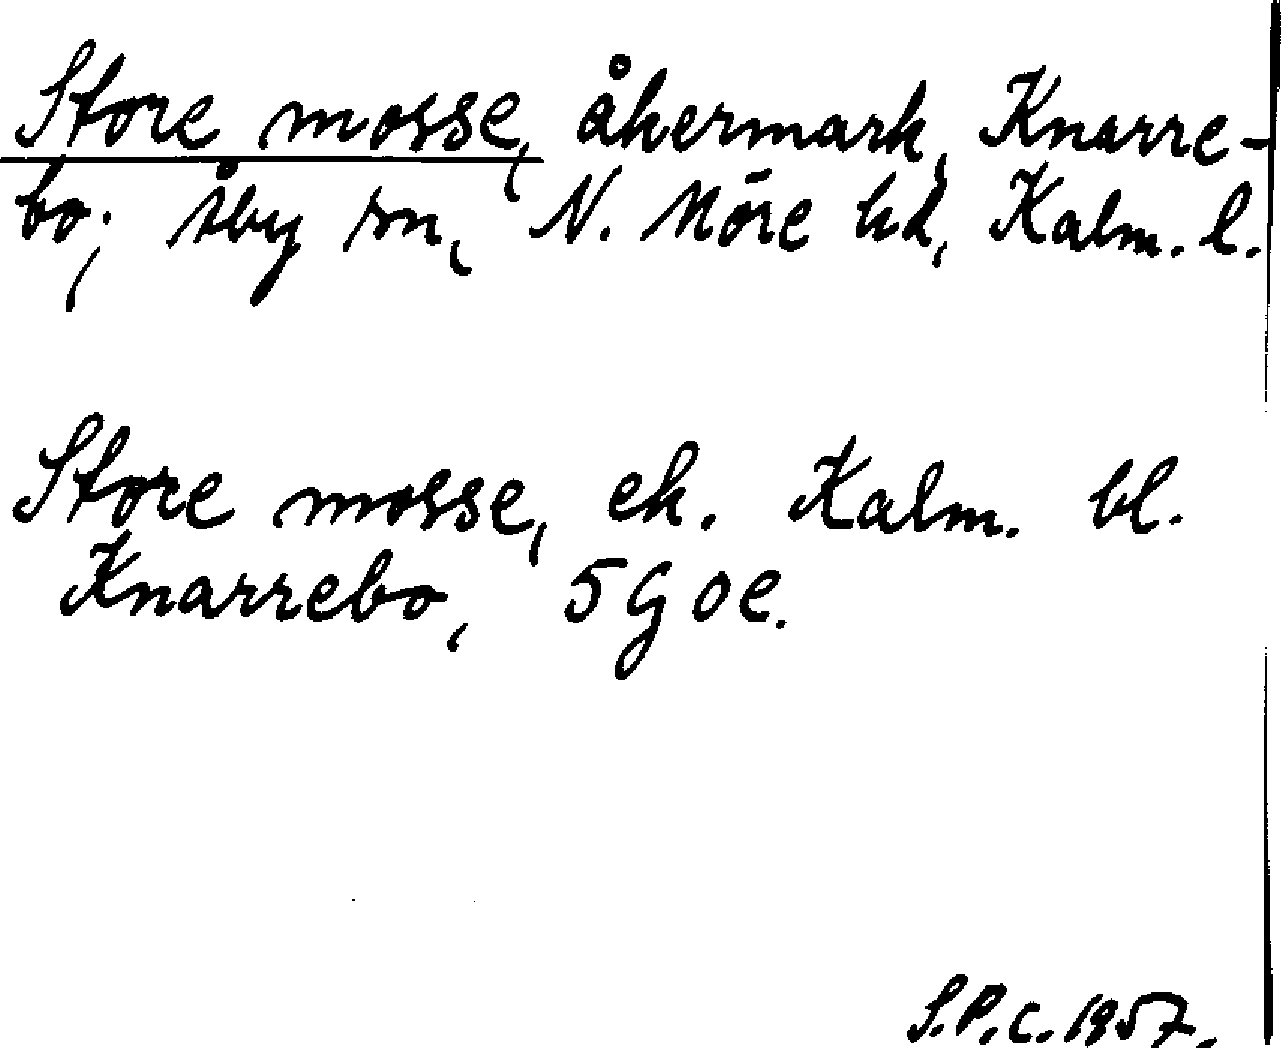 Store mosse, åkermark, Knarre-
bo; Åby sn, N. Möre hd, Kalm. l.
Store mosse, ek. Kalm. bl.
Knarrebo, 5G0e.
S.P.C. 1957.